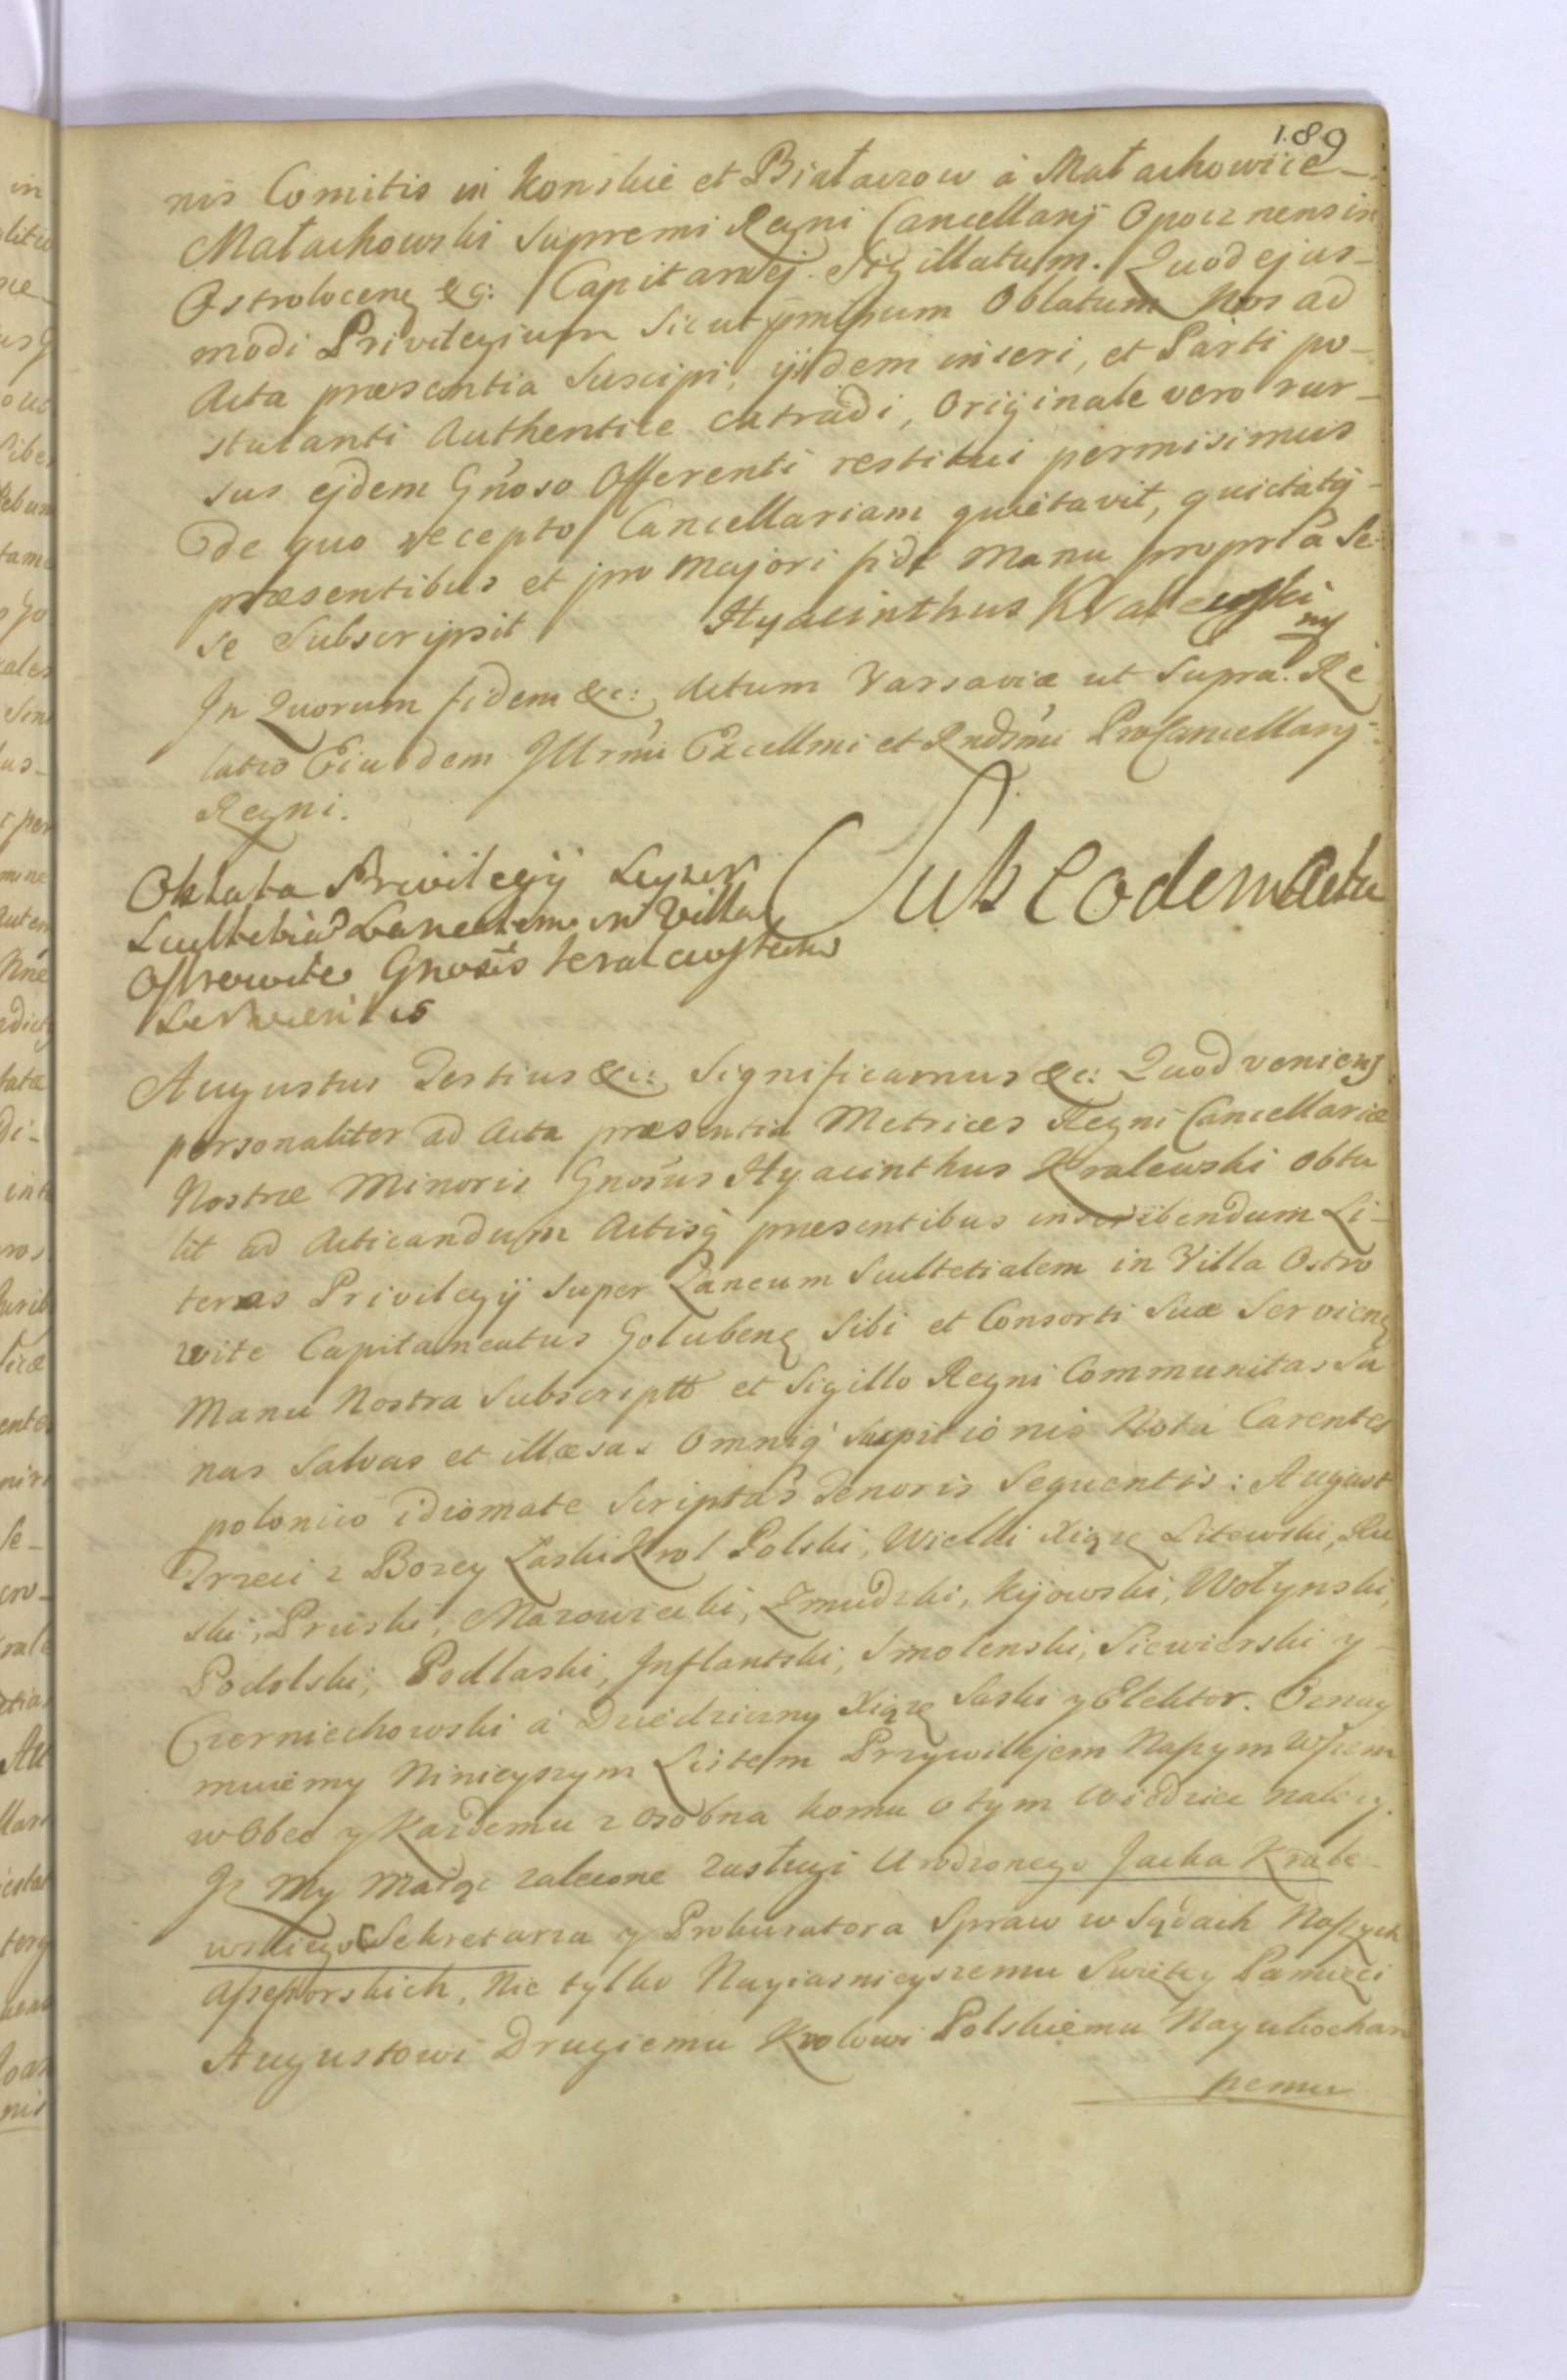 189
nis Comitis in Konskie et Białaczow á Małachowice
Małachowski Supremi Regni Cancellarij Opocznensis
Ostrolecenẹ &c: Capitanej Sigillatum. Quod ejus-
modi Privilegium Sicut pmissum Oblatum Nos ad
Acta præsentia Suscipi, ijsdem inseri, et Parti po-
stulanti Authentice extradi, Originale vero rur-
sus ejdem Gnoso Offerenti restitui permisimus
de quo recepto Cancellariam quietavit, quietatq
præsentibus et pro majori fide Manu propria Se
se Subscripsit Hyacinthus Kralewski
mp
In Quorum fidem &c: Actum Varsaviæ ut Supra. Re
latio Eiusdem Illrmi Excellmi et Rndsmi ProCancellarij
Regni.
Oblata Privilegij Super
Scultetia Laneum in Villa
Ostrowite Gnosis Kralewskim
Servienes
Sub Eodem Actu
Augustus Tertius &c: Significamus &c: Quod veniens
personaliter ad Acta præsentia Metrices Regni Cancellariæ
Nostræ Minoris Gnosus Hyacinthus Kralewski obtu
lit ad Acticandum Actisq præsentibus inscribendum Li-
teras Privilegij Super Laneum Scultetialem in Villa Ostro
wite Capitaneatus Golubenẹ Sibi et Consorti Suæ Servienẹ
Manu Nostra Subscriptt et Sigillo Regni Communitas Sa
nas Salvas et illæsas Omniq Suspicionis Nota Carentes
polonico idiomate Scriptas Tenoris Sequentis: August
Trzeci z Bozey Łaski Krol Polski, Wielki Xiąze Litewski, Ru
ski, Pruski, Mazowiecki, Zmudzki, Kijowski, Wołynski,
Podolski, Podlaski, Inflantski, Smolenski, Siewierski y
Czerniechowski á Dziedziczny Xiąze Saski y Elektor. Oznay
muiemy Ninieyszym Listem Przywilejem Naszym Wszem
w Obec y Kazdemu z osobna komu o tym Wiedziec nalezy.
Iz My Maiąc zalecone zasługi Urodzonego Jacka Krale-
wskiego Sekretarza y Prokuratora Spraw w Sądach Naszych
Assessorskich, Nie tylko Nayiasnieyszemu Swiętey Pamięci
Augustowi Drugiemu Krolowi Polskiemu Nayukochan
szemu